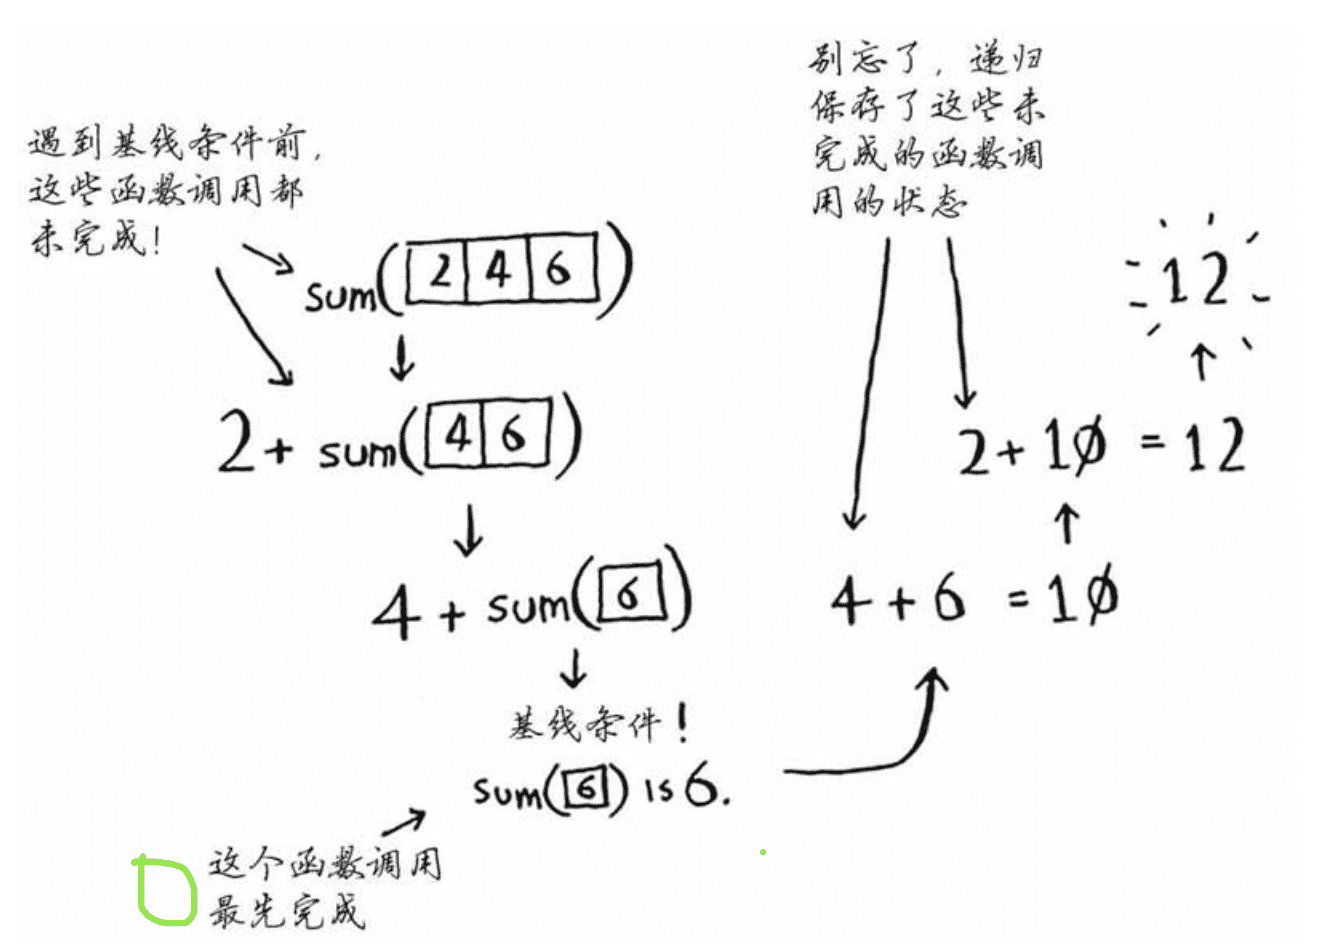 别忘了，递归
保存了这些未
完成的函数调
用的状态
遇到基线条件前，
这些函数调用都
未完成！
sum(2 4 6)
12
2+ sum(4 6)
2+10 =12
4 + sum(6)
4+6 =10
基线条件！
sum(6) is 6.
这个函数调用
最先完成